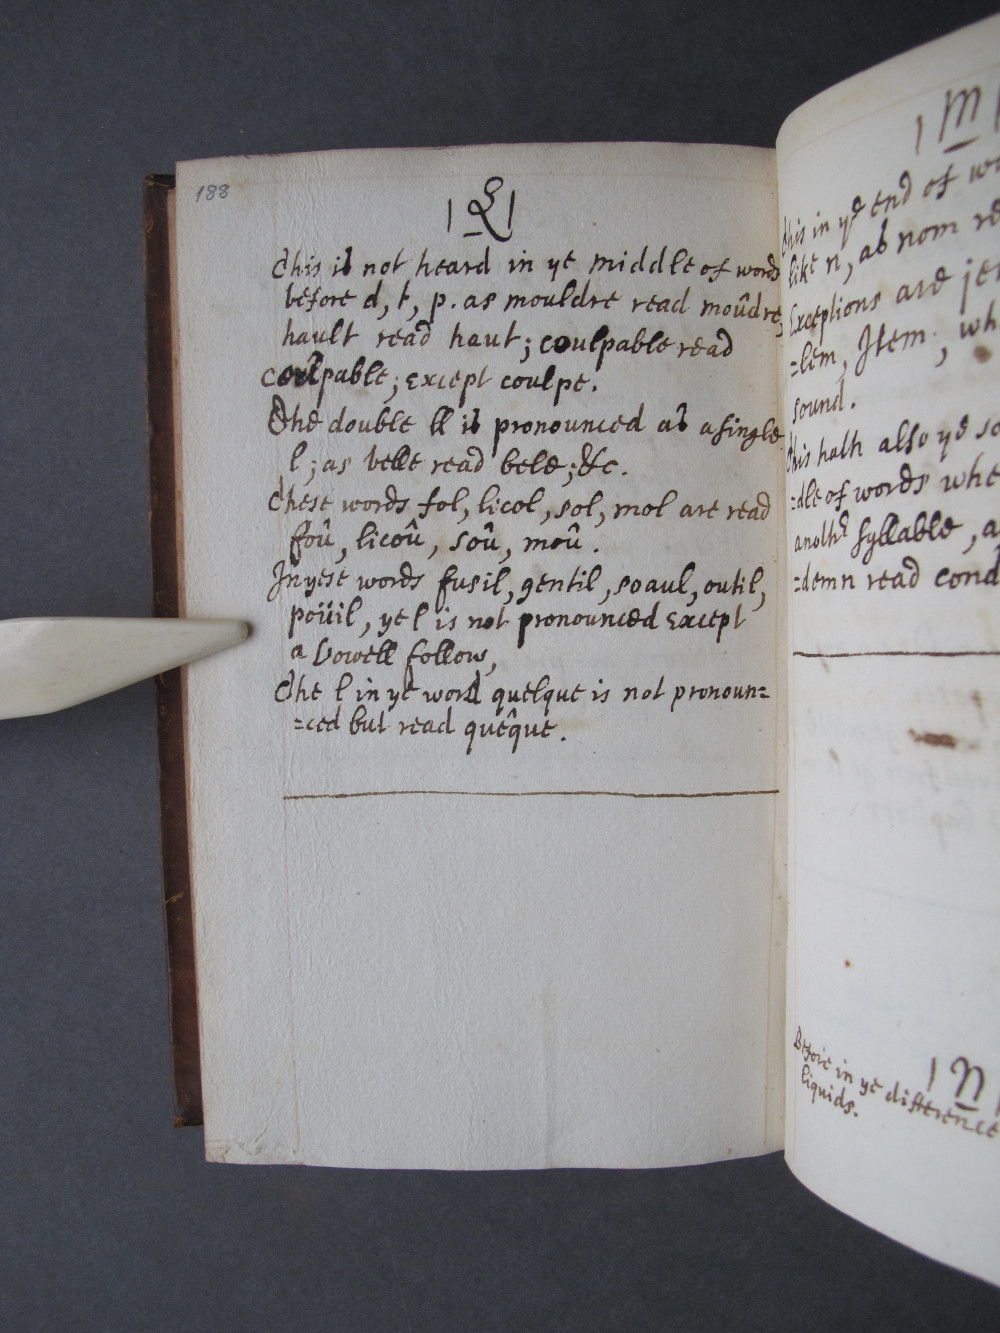 188
| L |
This is not heard in ye middle of words
before d, t, p. as mouldre read moûdre,
hault read haut; coulpable read
coupable; except coulpe.
The double ll is pronounced as a single
l; as belle read bele; &c.
These words fol, licol, sol, mol are read
foû, licoû, soû, moû.
In yese words fusil, gentil, soaul, outil,
poüil, ye l is not pronounced Except
a Vowell follow,
The l in ye word quelque is not pronoun=
=ced but read quêque.
| m |
This in ye end of
like n, as nom
Exceptions are
=lem, Item,
sound.
This hath also ye
=dle of words
anothr syllable,
=demn read
| n |
Before in ye difference
liquids.